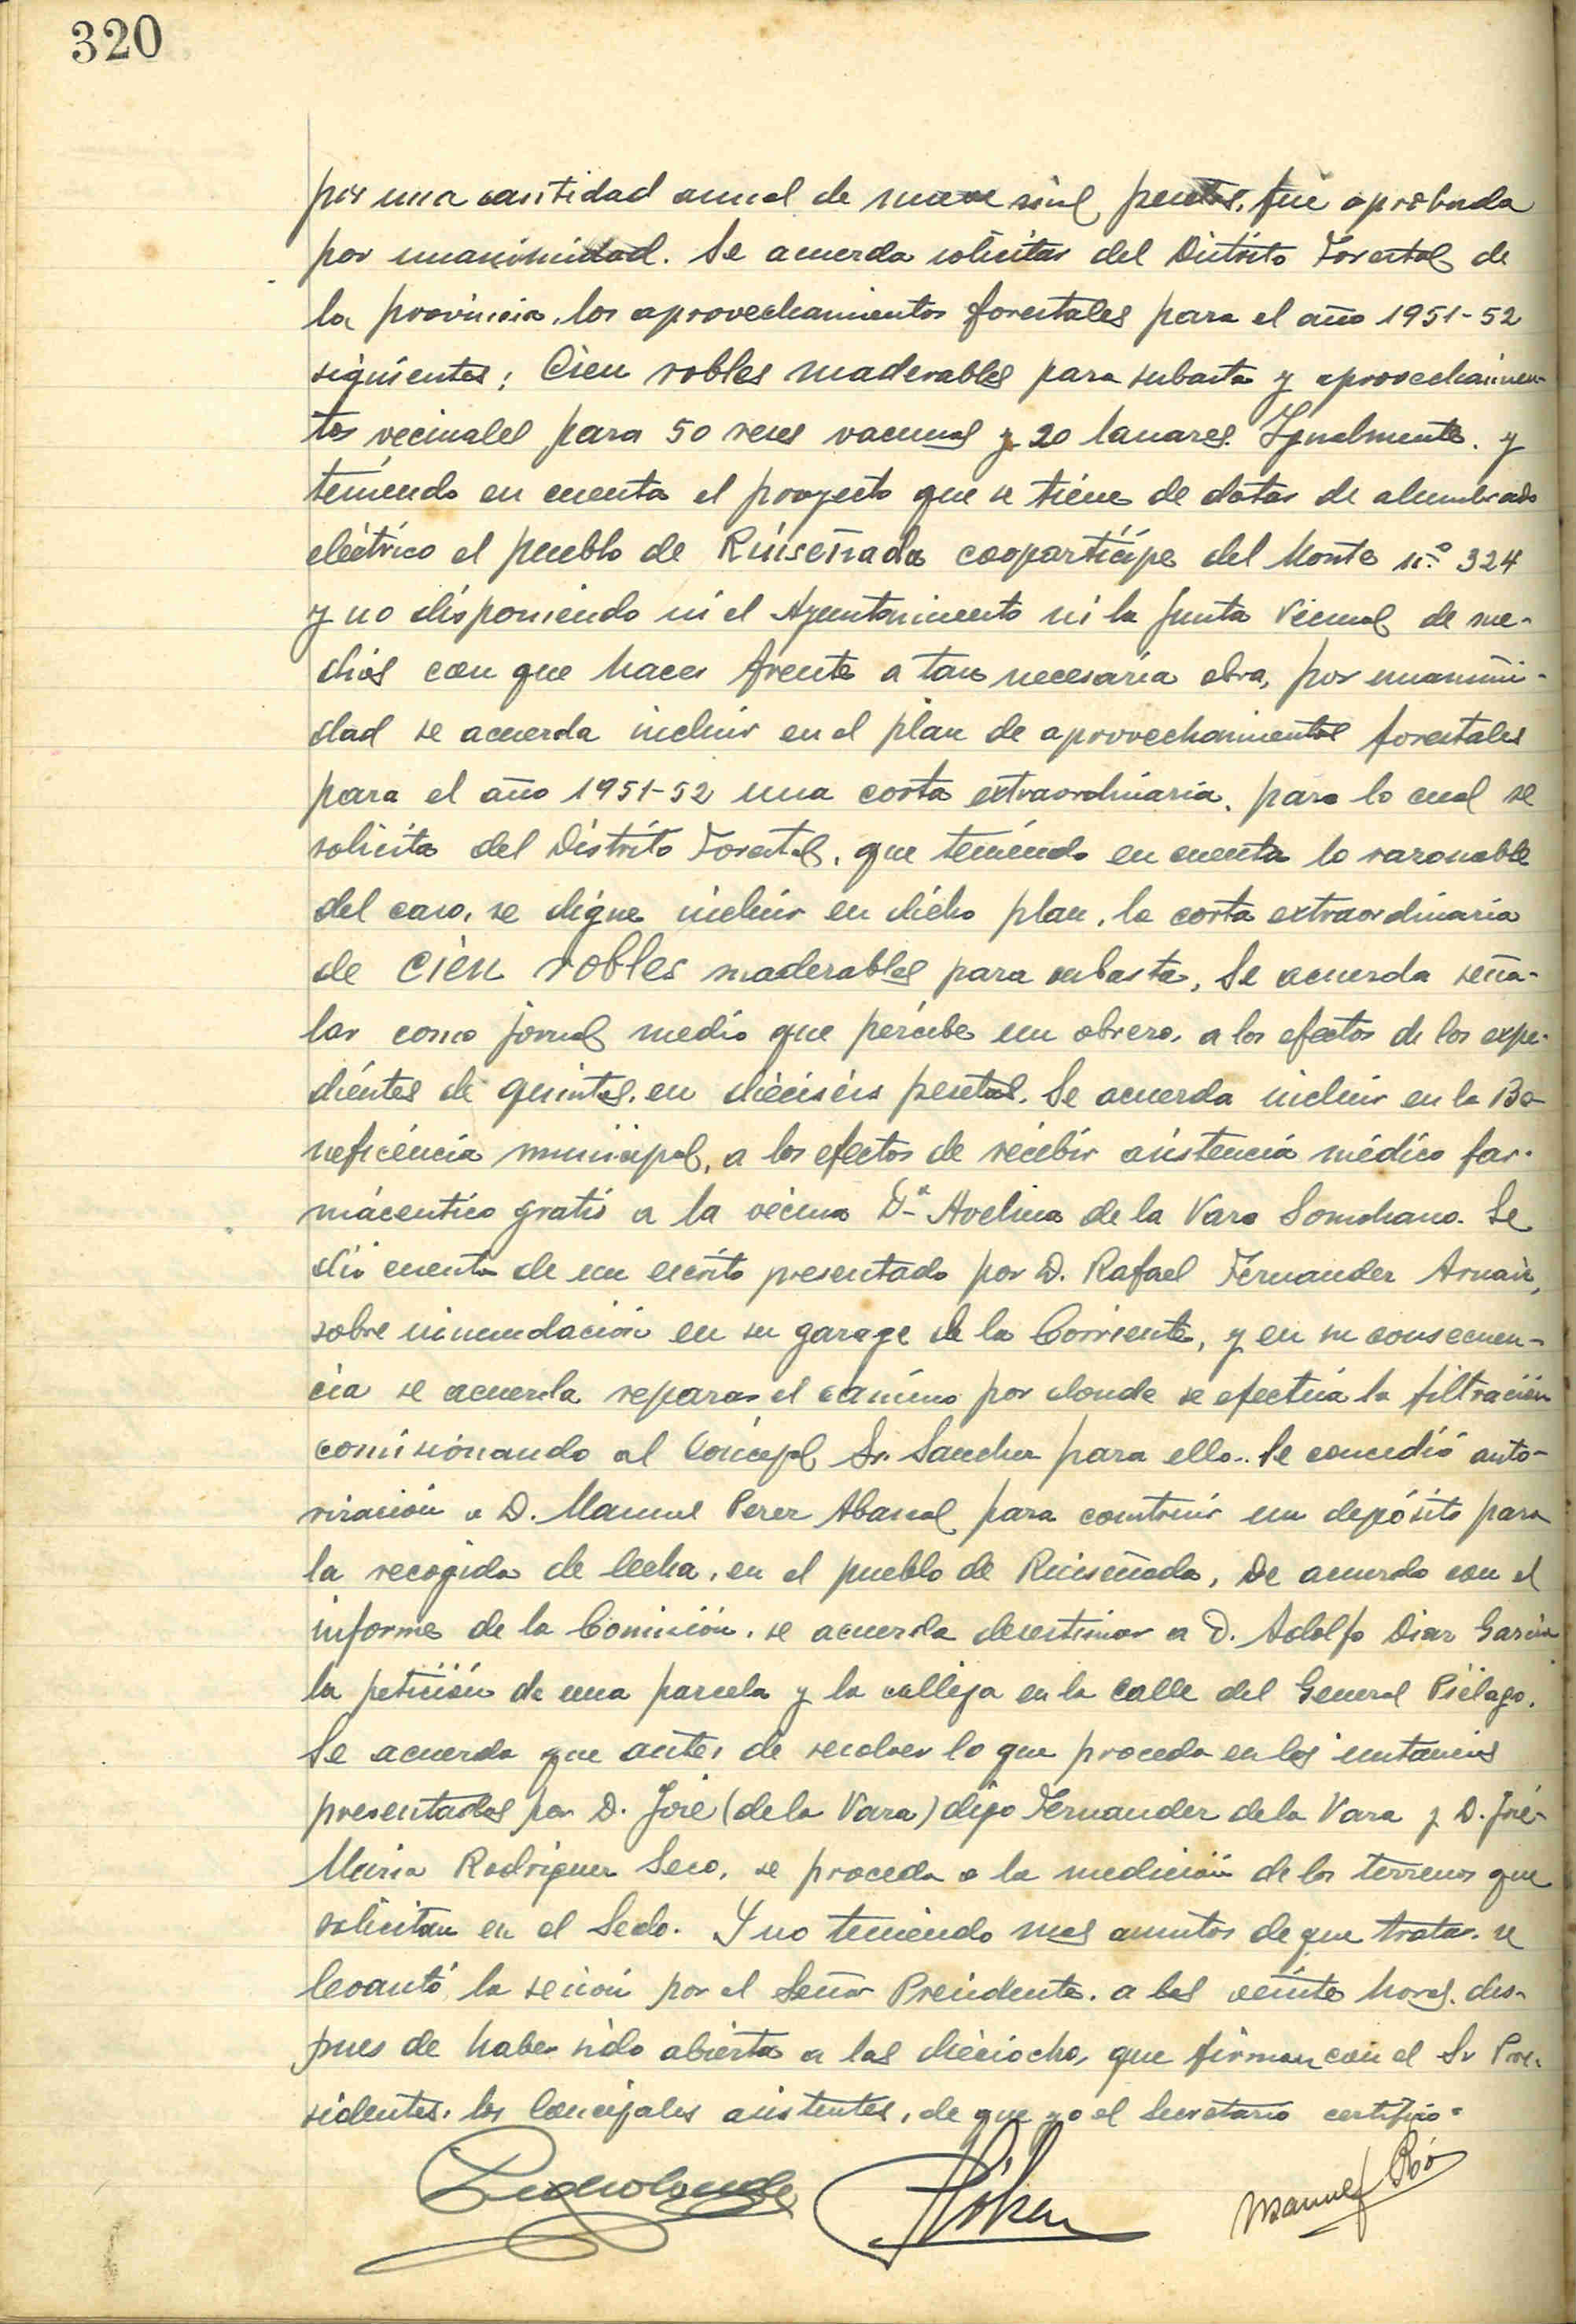 320
por una cantidad anual de nueve mil pesetas, fue aprobada
por unanimidad. Se acuerda solicitar del Distrito Forestal de
la provincia, los aprovechamientos forestales para el año 1951-52
siguientes; Cien robles maderables para subasta y aprovechamien-
tos vecinales para 50 reses vacunas y 20 lanares. Igualmente, y
teniendo en cuenta el proyecto que se tiene de dotar de alumbrado
eléctrico el pueblo de Ruiseñada coopartícipe del Monte n.º 324
y no disponiendo ni el Ayuntamiento ni la Junta Vecinal de me-
dios con que hacer frente a tan necesaria obra, por unanimi-
dad se acuerda incluir en el plan de aprovechamientos forestales
para el año 1951-52 una corta extraordinaria, para lo cual se
solicita del Distrito Forestal, que teniendo en cuenta lo razonable
del caso, se digne incluir en dicho plan, la corta extraordinaria
de cien robles maderables para subasta, Se acuerda seña-
lar como jornal medio que percibe un obrero, a los efectos de los expe-
dientes de quintas, en dieciséis pesetas. Se acuerda incluir en la Be-
neficencia municipal, a los efectos de recibir asistencia médico far-
macéutico gratis a la vecina Dª Avelina de la Vara Somohano. Se
dió cuenta de un escrito presentado por D. Rafael Fernandez Arnaiz,
sobre inundación en su garage de la Corriente, y en su consecuen-
cia se acuerda reparar el camino por donde se efectúa la filtración
comisionando al Concejal Sr. Sanchez para ello.. Se concedió auto-
rización a D. Manuel Perez Abascal para construir un depósito para
la recogida de leche, en el pueblo de Ruiseñada, De acuerdo con el
informe de la Comisión, se acuerda desestimar a D. Adolfo Diaz Garcia
la petición de una parcela y la calleja en la calle del General Piélago.
Se acuerda que antes de resolver lo que proceda en las instancias
presentadas por D. José (de la Vara) digo Fernandez de la Vara y D. José-
Maria Rodriguez Seco, se proceda a la medición de los terrenos que
solicitan en el Sedo. Y no teniendo mas asuntos de que tratar, se
levantó la sesión por el Señor Presidente, a las veinte horas, des-
pues de haber sido abierta a las dieciocho, que firman con el Sr Pre-
sidente, los Concejales asistentes, de que yo el Secretario certifico.
Manuel